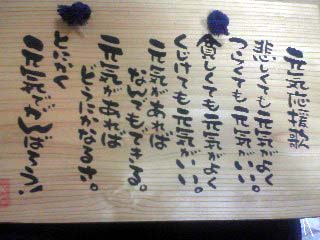 元気応援歌
悲しくても元気がよく
つらくても元気がいい。
貧しくても元気がよく
くじけても元気がいい
元気があれば
なんでもできる。
元気があれば
どうにかなるさ。
とにかく
元気でがんばろう!